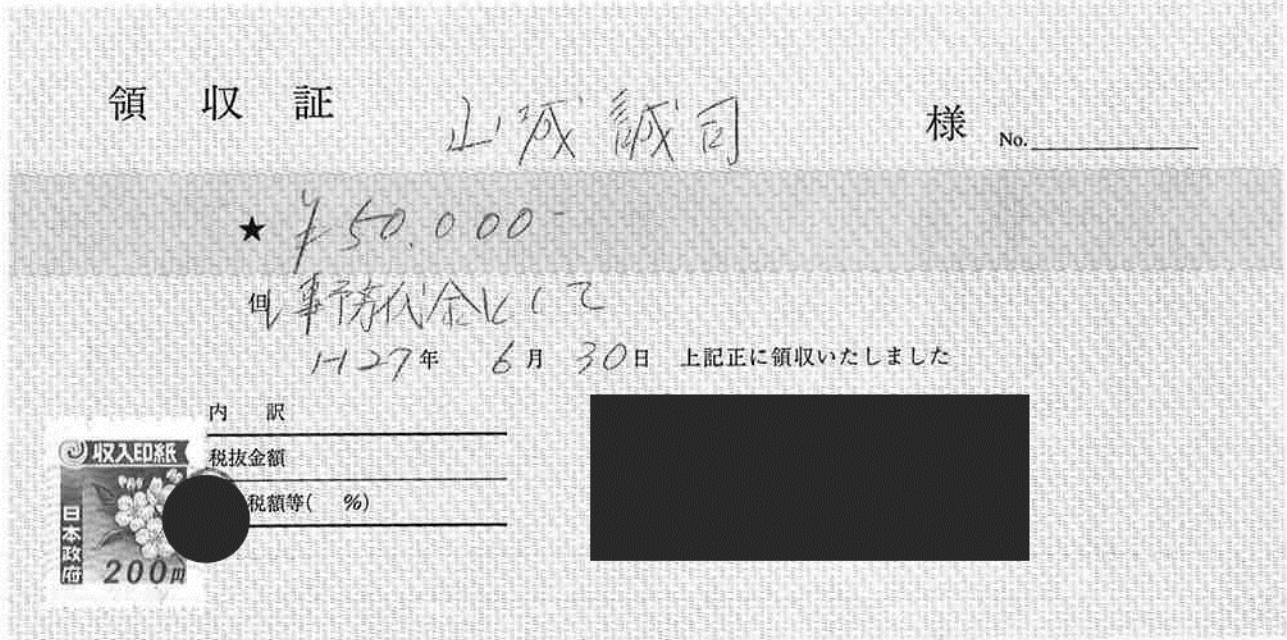 領収証 山城誠司 様 No.
★ ¥50.000-
但 事務代金として
H27年 6月 30日 上記正に領収いたしました
内 訳
税抜金額
税額等( %)
収入印紙
日本政府
200円